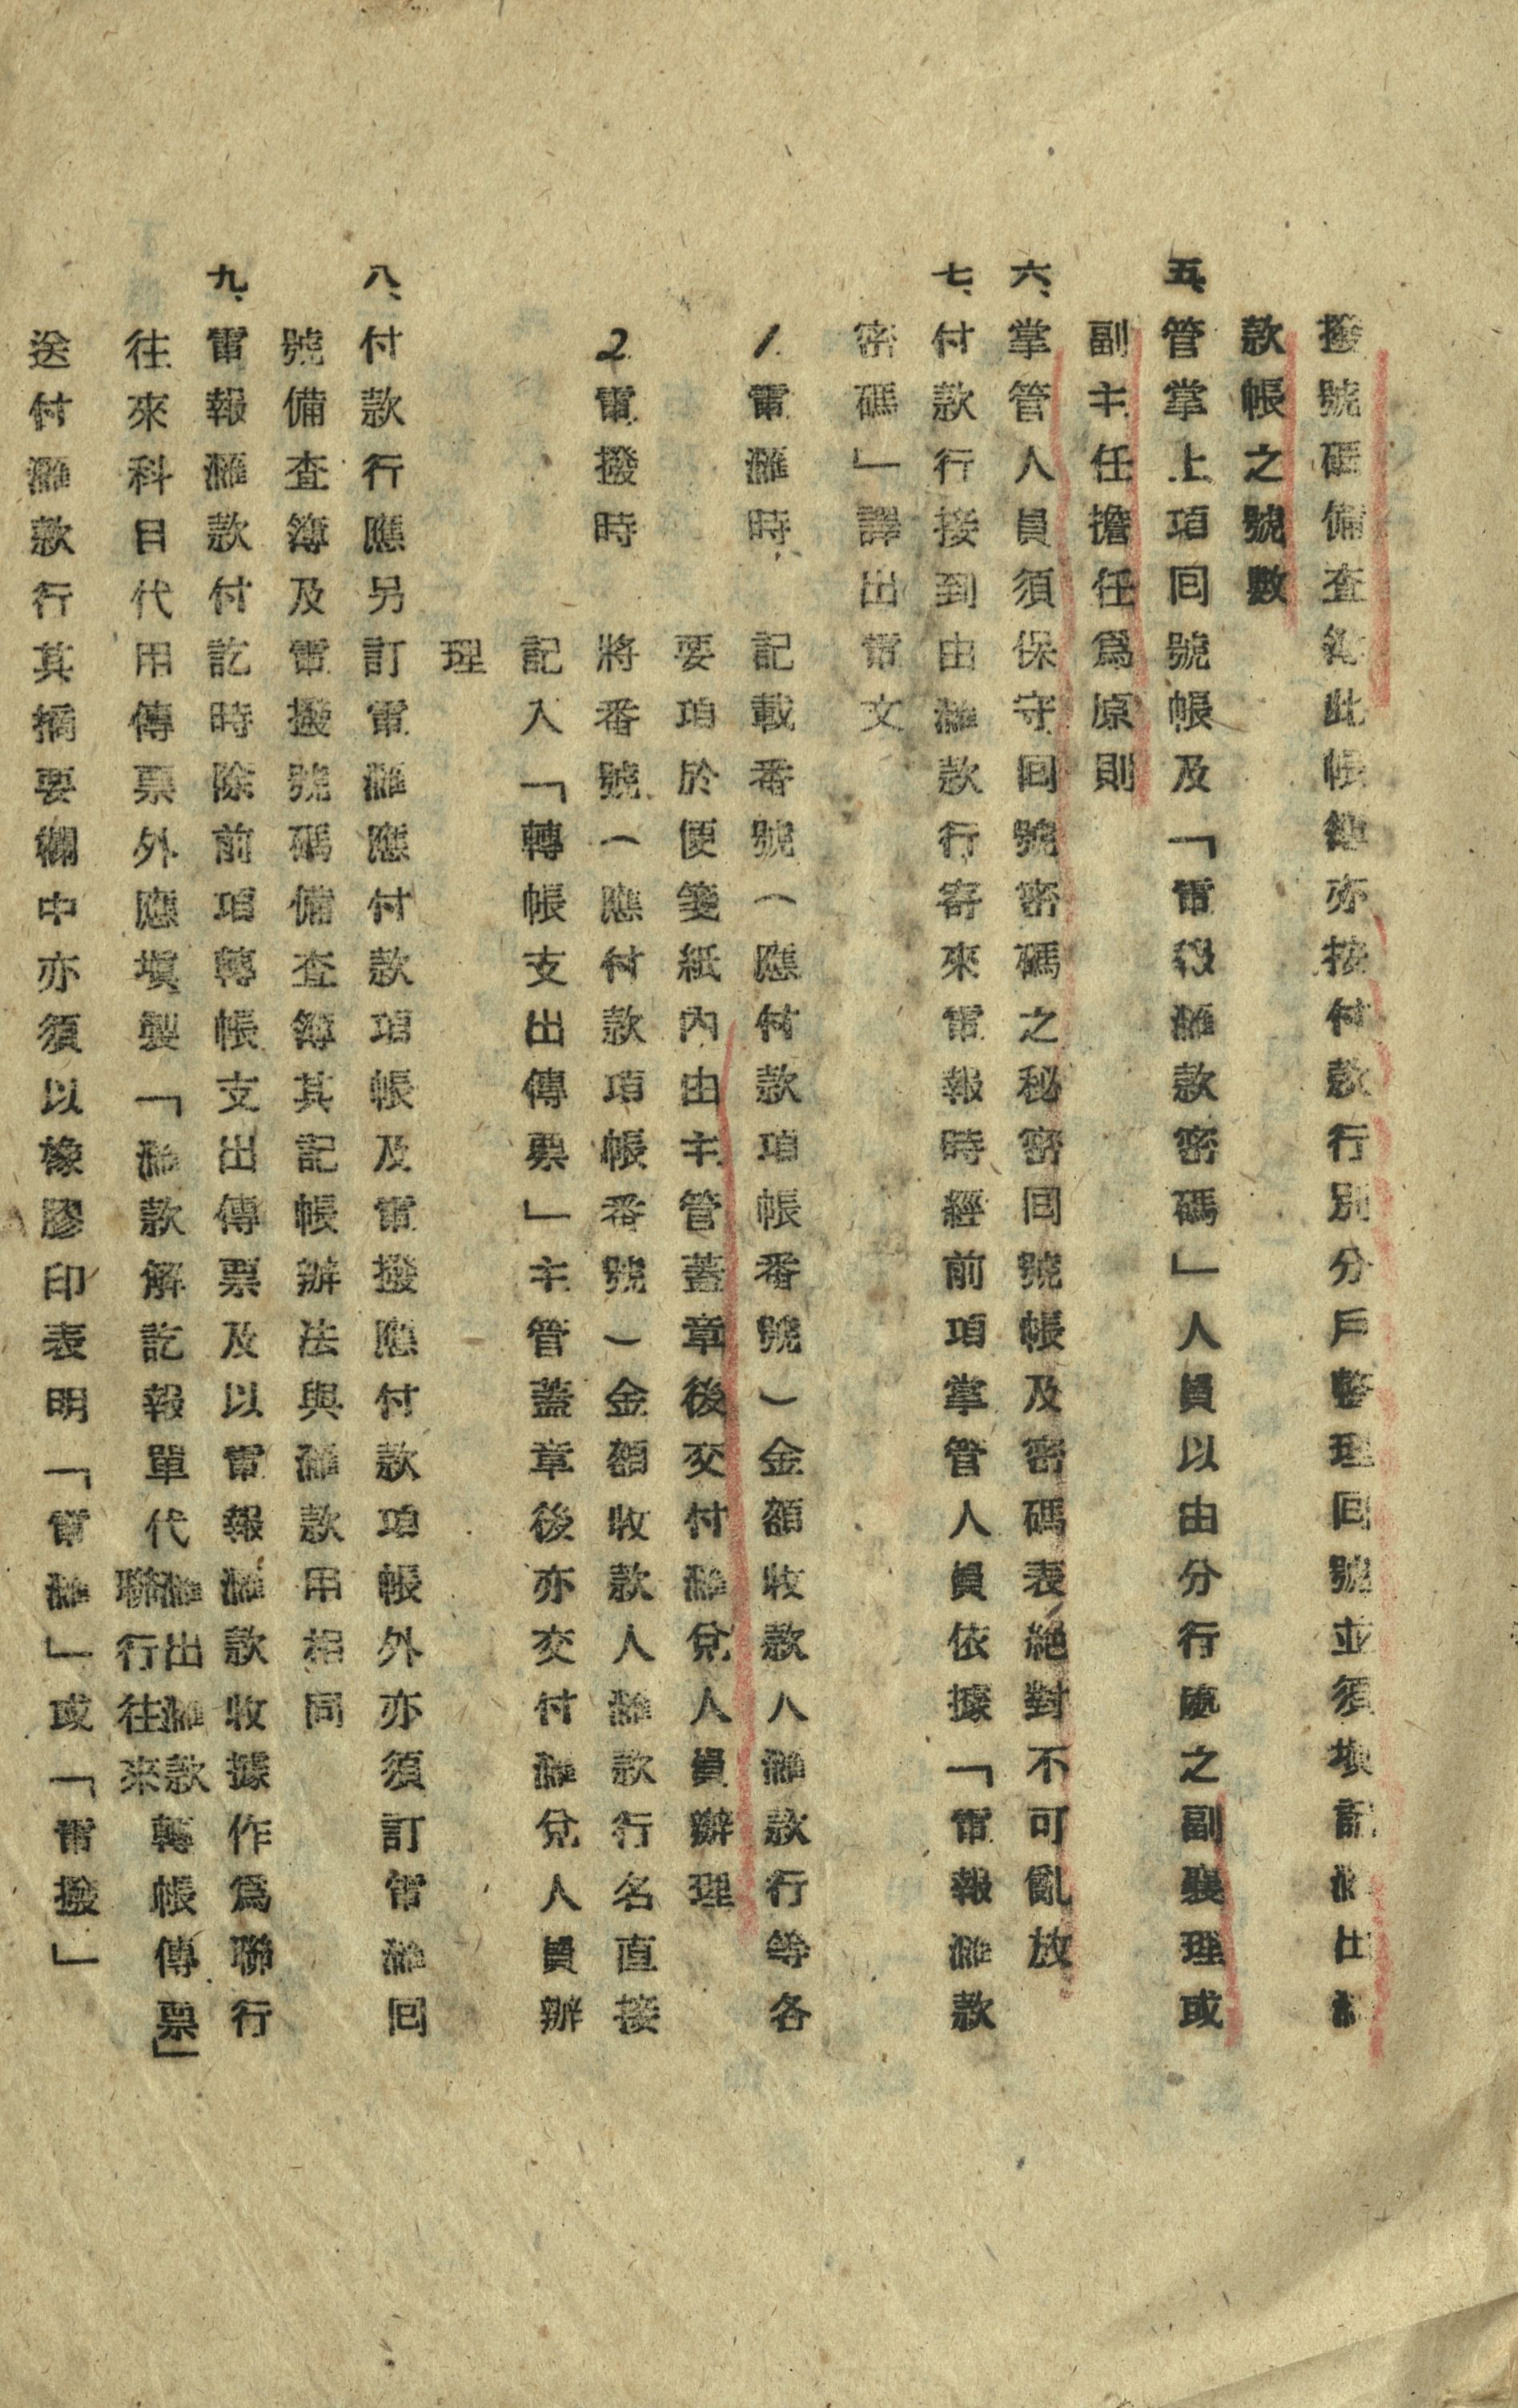 撥號碼備査簿此帳簿亦按付款行別分戶整理回號並須塡記
款帳之號數
五、管掌上項回號帳及「電報滙款密碼」人員以由分行處之副襄理或
副主任擔任爲原則
六、掌管人員須保守回號密碼之秘密回號帳及密碼表絕對不可亂放
七、付款行接到由滙款行寄來電報時經前項掌管人員依據「電報滙款
密碼」譯出電文
1. 電滙時　記載番號(應付款項帳番號)金額收款人滙款行等各
要項於便箋紙內由主管蓋章後交付滙兌人員辦理
2 電撥時　將番號(應付款項帳番號)金額收款人滙款行名直接
記入「轉帳支出傳票」主管蓋章後亦交付滙兌人員辦
理
八、付款行應另訂電滙應付款項帳及電撥應付款項帳外亦須訂電滙回
號備査簿及電撥號碼備査簿其記帳辦法與滙款用相同
九、電報滙款付訖時除前項轉帳支出傳票及以電報滙款收據作爲聯行
往來科目代用傳票外應塡製「滙款解訖報單代滙出滙款聯行往來轉帳傳票」
送付滙款行其摘要欄中亦須以橡膠印表明「電滙」或「電撥」